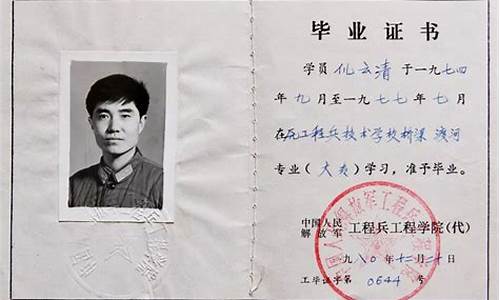 毕业证书
学员 仉云清 于一九七四
年九月至一九七七年七月
在原工程兵技术学校桥梁 渡河
专业（大专）学习，准予毕业。
中国人民
解放军 工程兵工程学院（代）
一九八〇年十二月二十日
工毕证字第 0644 号